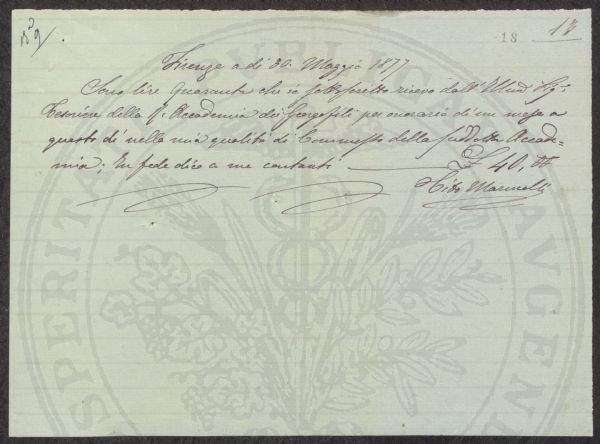 N° 9
18
18
Firenze a dì 30. Maggio 1877
Sono lire Quaranta che io sottoscritto ricevo dall' Illmo Sigr.
Tesoriere della R. Accademia dei Georgofili per onorario di un mese a
questo dì nella mia qualità di Commesso della suddetta Accade=
mia; In fede dico a me contanti £ 40,
Tito Marinelli
PUBLICA
PROSPERITATI
AUGENDAE